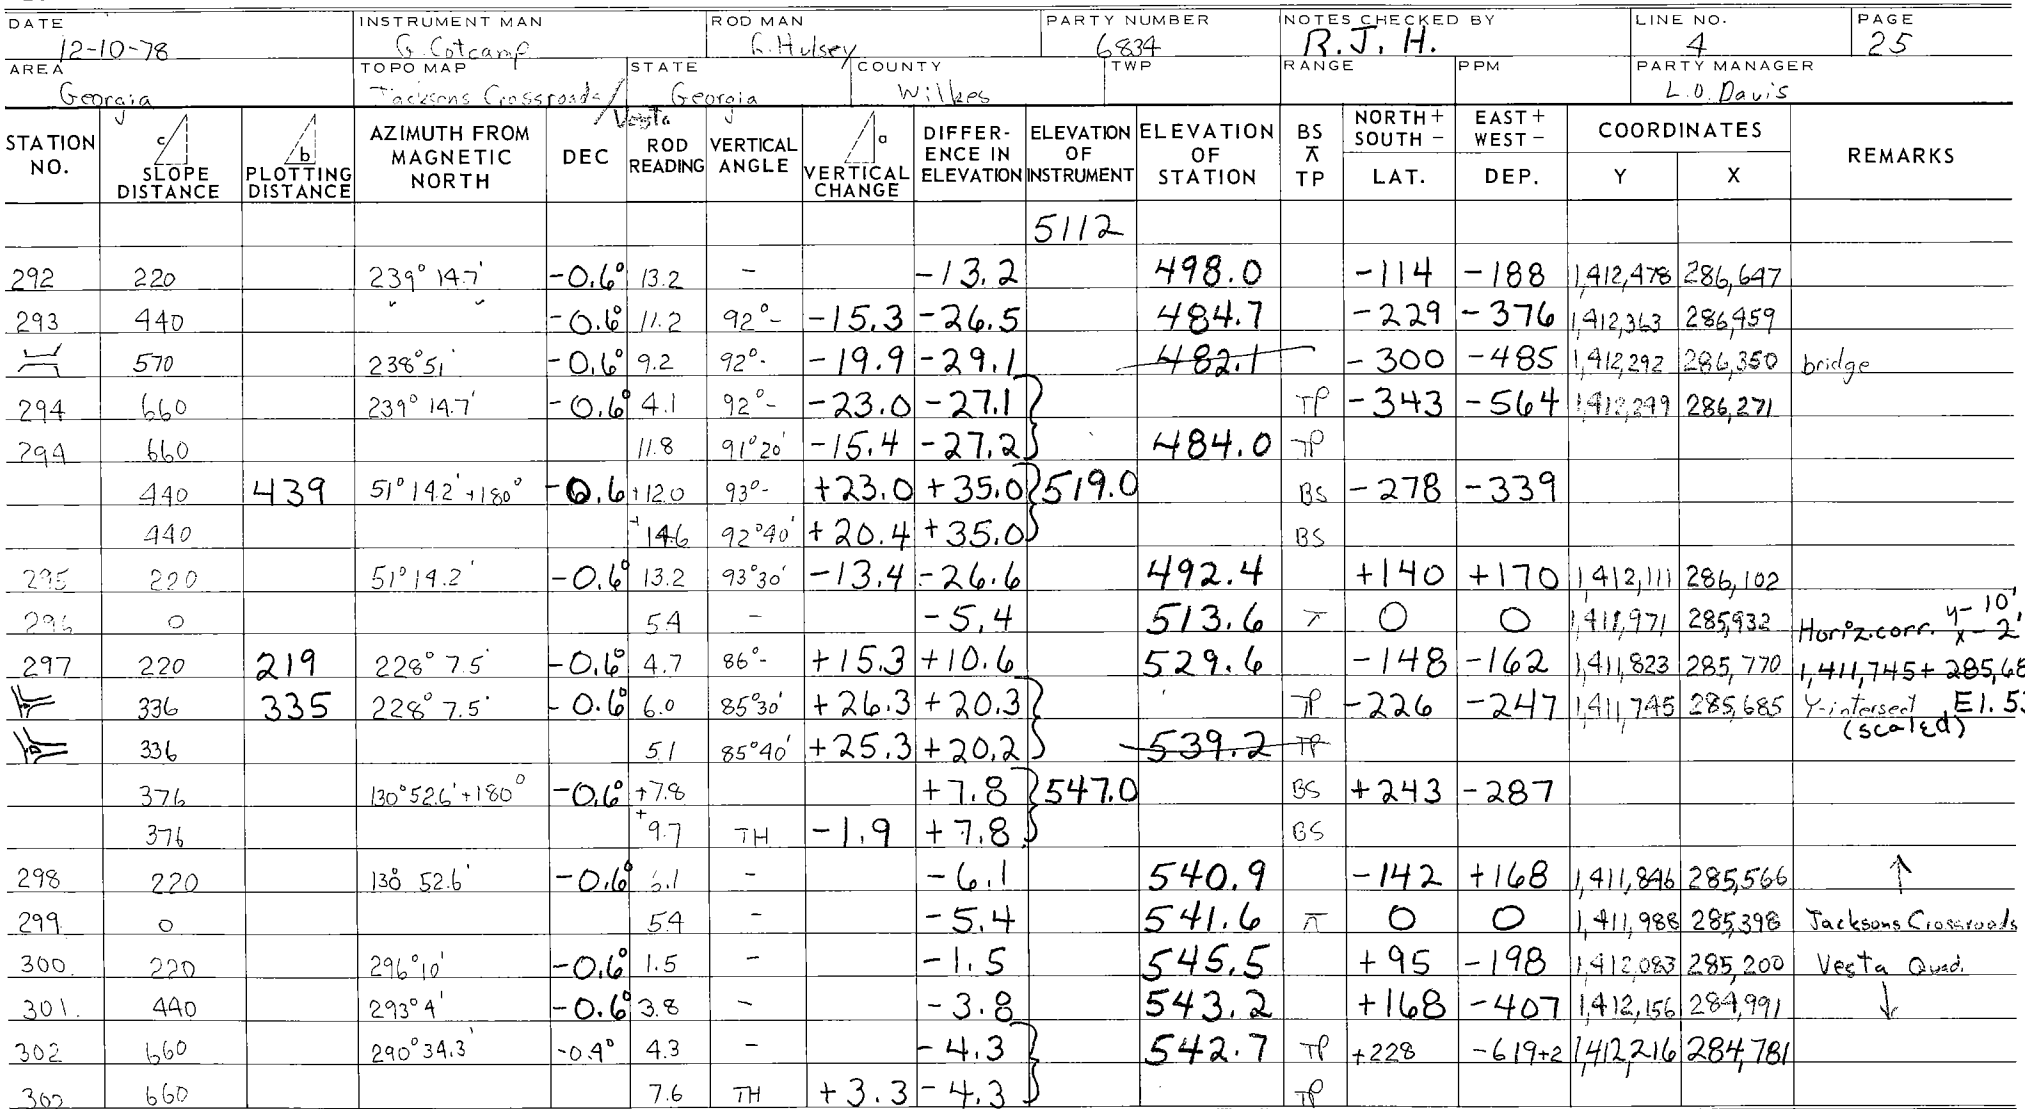 DATE INSTRUMENT MAN ROD MAN PARTY NUMBER NOTES CHECKED BY LINE NO. PAGE
12-10-78 G. Cotcamp G. Hulsey 6834 R.J.H. 4 25
AREA TOPO MAP STATE COUNTY TWP RANGE PPM PARTY MANAGER
Georgia Jacksons Crossroads/Vesta Georgia Wilkes L.O. Davis
STATION NO. c SLOPE DISTANCE b PLOTTING DISTANCE AZIMUTH FROM MAGNETIC NORTH DEC ROD READING VERTICAL ANGLE a VERTICAL CHANGE DIFFER-ENCE IN ELEVATION ELEVATION OF INSTRUMENT ELEVATION OF STATION BS ⊼ TP NORTH + SOUTH - LAT. EAST + WEST - DEP. COORDINATES Y X REMARKS
5112
292 220 239° 14.7' -0.6° 13.2 - -13.2 498.0 -114 -188 1,412,478 286,647
293 440 " " -0.6° 11.2 92°- -15.3 -26.5 484.7 -229 -376 1,412,363 286,459
570 238°51' -0.6° 9.2 92°- -19.9 -29.1 482.1 -300 -485 1,412,292 286,350 bridge
294 660 239° 14.7' -0.6° 4.1 92°- -23.0 -27.1 TP -343 -564 1,412,249 286,271
294 660 11.8 91°20' -15.4 -27.2 484.0 TP
440 439 51°14.2'+180° -0.6 +12.0 93°- +23.0 +35.0 519.0 BS -278 -339
440 +14.6 92°40' +20.4 +35.0 BS
295 220 51°14.2' -0.6° 13.2 93°30' -13.4 -26.6 492.4 +140 +170 1,412,111 286,102
296 0 5.4 - -5.4 513.6 ⊼ 0 0 1,411,971 285,932 Horiz. corr. y-10', x-2'
297 220 219 228° 7.5' -0.6° 4.7 86°- +15.3 +10.6 529.6 -148 -162 1,411,823 285,770 1,411,745 + 285,68
336 335 228° 7.5' -0.6° 6.0 85°30' +26.3 +20.3 TP -226 -247 1,411,745 285,685 Y-intersect El. 53
(scaled)
336 5.1 85°40' +25.3 +20.2 539.2 TP
376 130°52.6'+180° -0.6° +7.8 +7.8 547.0 BS +243 -287
376 +9.7 TH -1.9 +7.8 BS
298 220 130 52.6' -0.6° 6.1 - -6.1 540.9 -142 +168 1,411,846 285,566 ↑
299. 0 5.4 - -5.4 541.6 ⊼ 0 0 1,411,988 285,398 Jacksons Crossroads
300. 220 296°10' -0.6° 1.5 - -1.5 545.5 +95 -198 1,412,083 285,200 Vesta Quad.
301. 440 293°4' -0.6° 3.8 - -3.8 543.2 +168 -407 1,412,156 284,991 ↓
302 660 290°34.3' -0.4° 4.3 - -4.3 542.7 TP +228 -619+2 1,412,216 284,781
302 660 7.6 TH +3.3 -4.3 TP